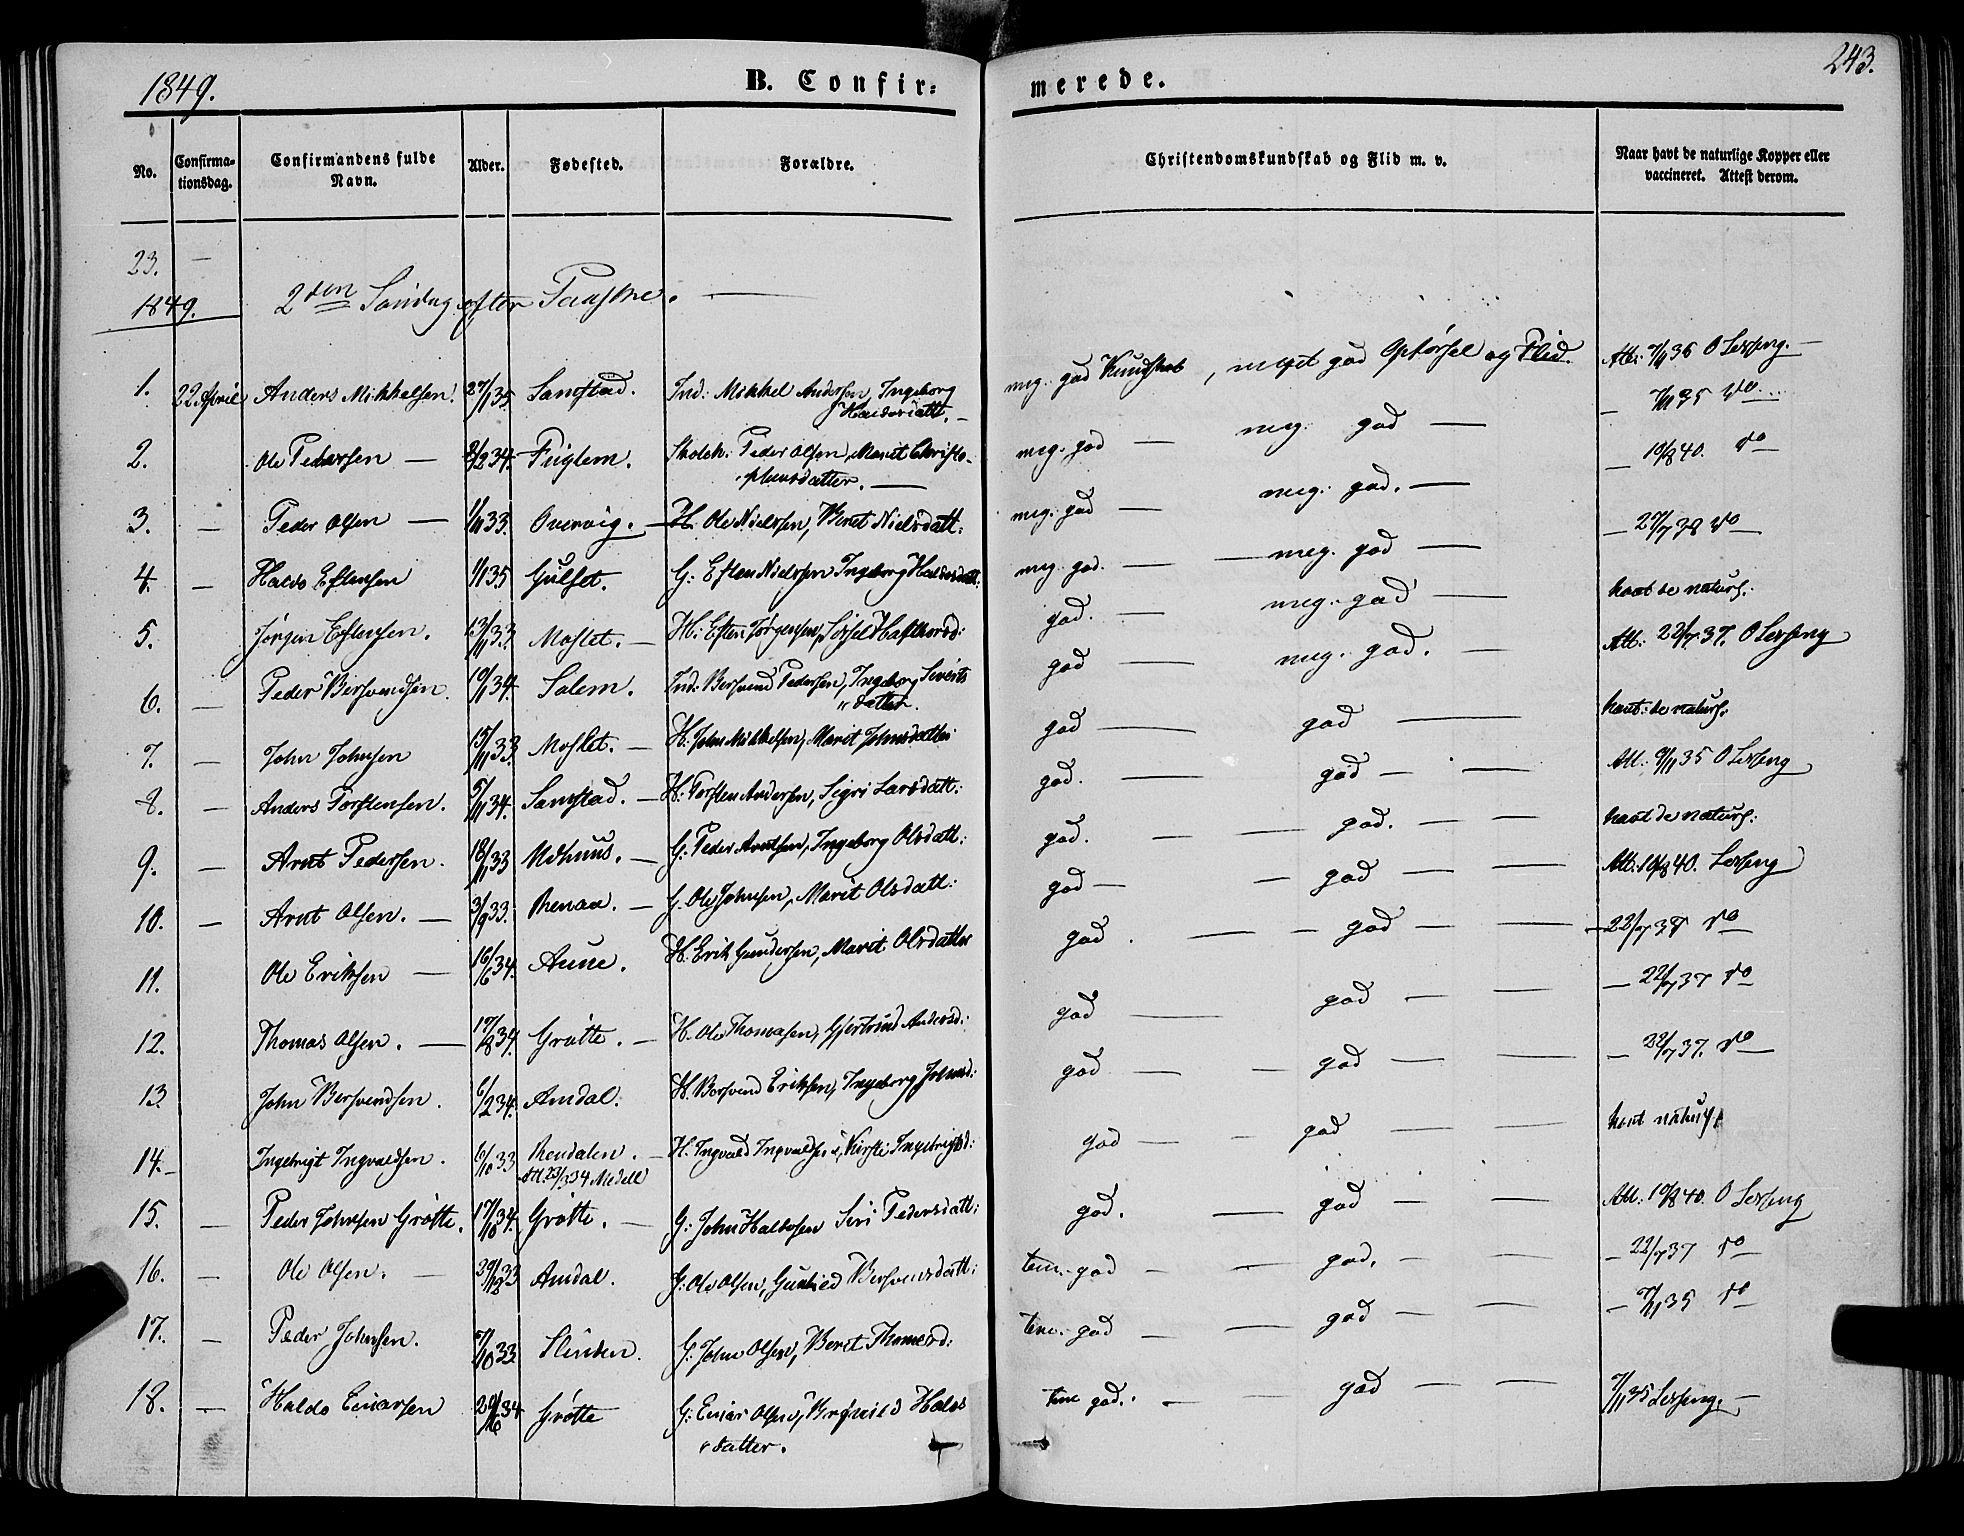 1849.
B. Confir:
merede.
243.
No.
Confirma-
tionsdag.
Confirmandens fulde
Navn.
Alder.
Fødested.
Forældre.
Christendomskundskab og Flid m. v.
Naar havt de naturlige Kopper eller
vaccineret. Attest derom.
23. —
1849. 2den Søndag efter Paaske. —
1. 22 April Anders Mikkelsen. 27/1 35 Samstad. Ind: Mikkel Andersen, Ingeborg
Haldorsdatt. —
meg: god Kundskab, meget god Opførsel og Flid. Att: 7/11 35 O Lessing. —
2. Ole Pedersen — 8/2 34. Fuglem. Skoleh: Peder Olsen, Marit Christo-
phersdatter. —
meg: god — meg: god — — 7/11 35 do
3. — Peder Olsen — 1/11 33. Overvig. — H: Ole Nielsen, Beret Nielsdatt:
meg: god — meg: god. — — 10/8 40. do
4. — Haldo Estensen 1/1 35 Gulset. G: Esten Nielsen Ingeborg Haldosdatt:
meg: god. — — meg. god — — 27/7 38 do
5. Jørgen Estensen. 13/11 33. Moslet. — H: Esten Jørgensen,
god. — meg: god — havt de naturl:
6. — Peder Bersvendsen. 10/1 34. Solem. Ind: Bersvend Pedersen, Ingeborg Siverts
datter.
god — meg: god. — Att: 22/7 37. O Lessing
7. — John Johnsen 15/11 33 Moslet. — H: John Mikkelsen, Marit Johnsdatter
god — god — havt: de naturl:
8. — Anders Torstensen. 5/11 34. Samstad. — H: Torsten Andersen, Sigri Larsdatt:
god. — god — — Att: 9/11 35 O Lessing
9. — Arnt Pedersen. 18/11 33 Udhuus. — G: Peder Arntsen, Ingeborg Olsdatt:
god. — — god. — — havt de naturl:
10. — Arnt Olsen. — 3/9 33. Renaa. — G. Ole Johnsen, Marit Olsdatt:
god — — god — — Att: 10/8 40. Lessing
11. Ole Eriksen — 16/6 34. Aune. H. Erik Gundersen, Marit Olsdatter
god. — — god — — 22/7 38 do
12. Thomas Olsen. — 17/8 34. Grøtte. — H. Ole Thomasen, Gjertrud Andersd:
god — god — — — 22/7 37 do
13. John Bersvendsen. 6/2 34. Amdal. H. Bersvend Eriksen, Ingeborg Johnsd:
god — — god — — — 22/7 37. do
14. — Ingebrigt Ingvaldsen. 6/10 33 Rendalen. — H. Ingvald Ingvaldsen, Kirsti Ingebrigtsd:
Att. 23/3 34
god — — god — — havt naturl:
15. — Peder Johnsen Grøtte. 17/10 34. Grøtte. — G: John Haldosen Siri Pedersdatt:
god. — god — — Att: 10/8 40. O Lessing
16. — Ole Olsen. — 29/12 33 Amdal. G: Ole Olsen, Gunhild Bersvendsdatt:
tem. god — — god. — — — 22/7 37 do
17. — Peder Johnsen. 7/10 33 Slinden. G: John Olsen, Beret Thomasd:
tem. god — — god — — — 7/11 35 do
18. — Haldo Einarsen 29/6 34 Grøtte G: Einar Olsen, Haldos
datter.
tem god. — — god — — 7/11 35 Lessing. —